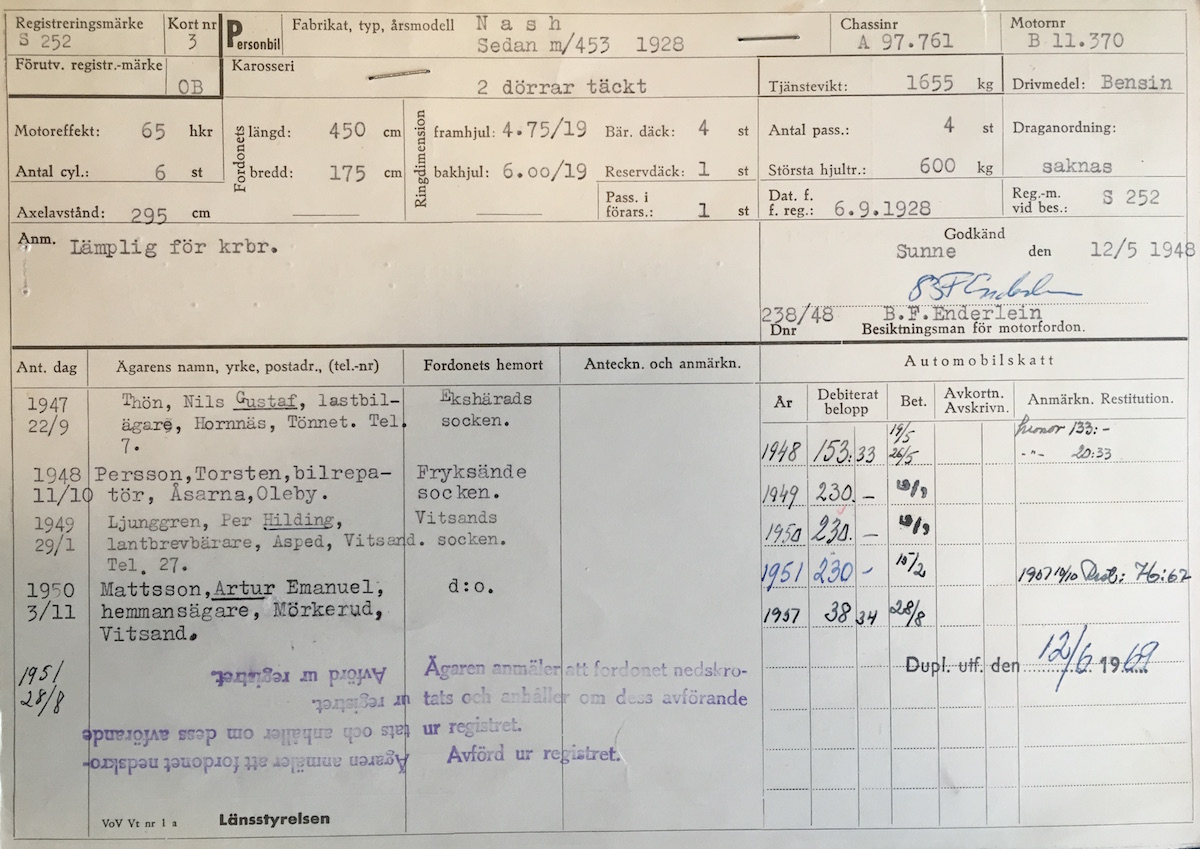 Registreringsmärke
S 252
Kort nr
3
Personbil
Fabrikat, typ, årsmodell
Nash
Sedan m/453 1928
Chassinr
A 97.761
Motornr
B 11.370
Förutv. registr.-märke
OB
Karosseri
2 dörrar täckt
Tjänstevikt: 1655 kg
Drivmedel: Bensin
Motoreffekt: 65 hkr
Fordonets
längd: 450 cm
Ringdimension
framhjul: 4.75/19
Bär. däck: 4 st
Antal pass.: 4 st
Draganordning:
saknas
Antal cyl.: 6 st
bredd: 175 cm
bakhjul: 6.00/19
Reservdäck: 1 st
Största hjultr.: 600 kg
Axelavstånd: 295 cm
Pass. i
förars.: 1 st
Dat. f.
f. reg.: 6.9.1928
Reg.-m.
vid bes.: S 252
Anm. Lämplig för krbr.
Godkänd
Sunne den 12/5 1948
BF Enderlein
238/48 B.F.Enderlein
Dnr Besiktningsman för motorfordon.
Ant. dag
Ägarens namn, yrke, postadr., (tel.-nr)
Fordonets hemort
Anteckn. och anmärkn.
Automobilskatt
År
Debiterat
belopp
Bet.
Avkortn.
Avskrivn.
Anmärkn. Restitution.
1947 Thön, Nils Gustaf, lastbil- Ekshärads
22/9 ägare, Hornnäs, Tönnet. Tel. socken.
7.
1948 Persson,Torsten,bilrepa- Fryksände
11/10 tör, Åsarna,Oleby. socken.
1949 Ljunggren, Per Hilding, Vitsands
29/1 lantbrevbärare, Asped, Vitsand. socken.
Tel. 27.
1950 Mattsson,Artur Emanuel, d:o.
3/11 hemmansägare, Mörkerud,
Vitsand.
1948 153:33 19/5 26/5 133:-
-"- 20:33
1949 230.-
1950 230.-
1951 230 - 15/2 76:67
1957 38 34 28/8
1951
28/8
Avförd ur registret.
ur registret.
tats och anhåller om dess avförande
Ägaren anmäler att fordonet nedskro-
Ägaren anmäler att fordonet nedskro-
tats och anhåller om dess avförande
ur registret.
Avförd ur registret.
Dupl. utf. den 12/6 1969
VoV Vt nr 1 a
Länsstyrelsen